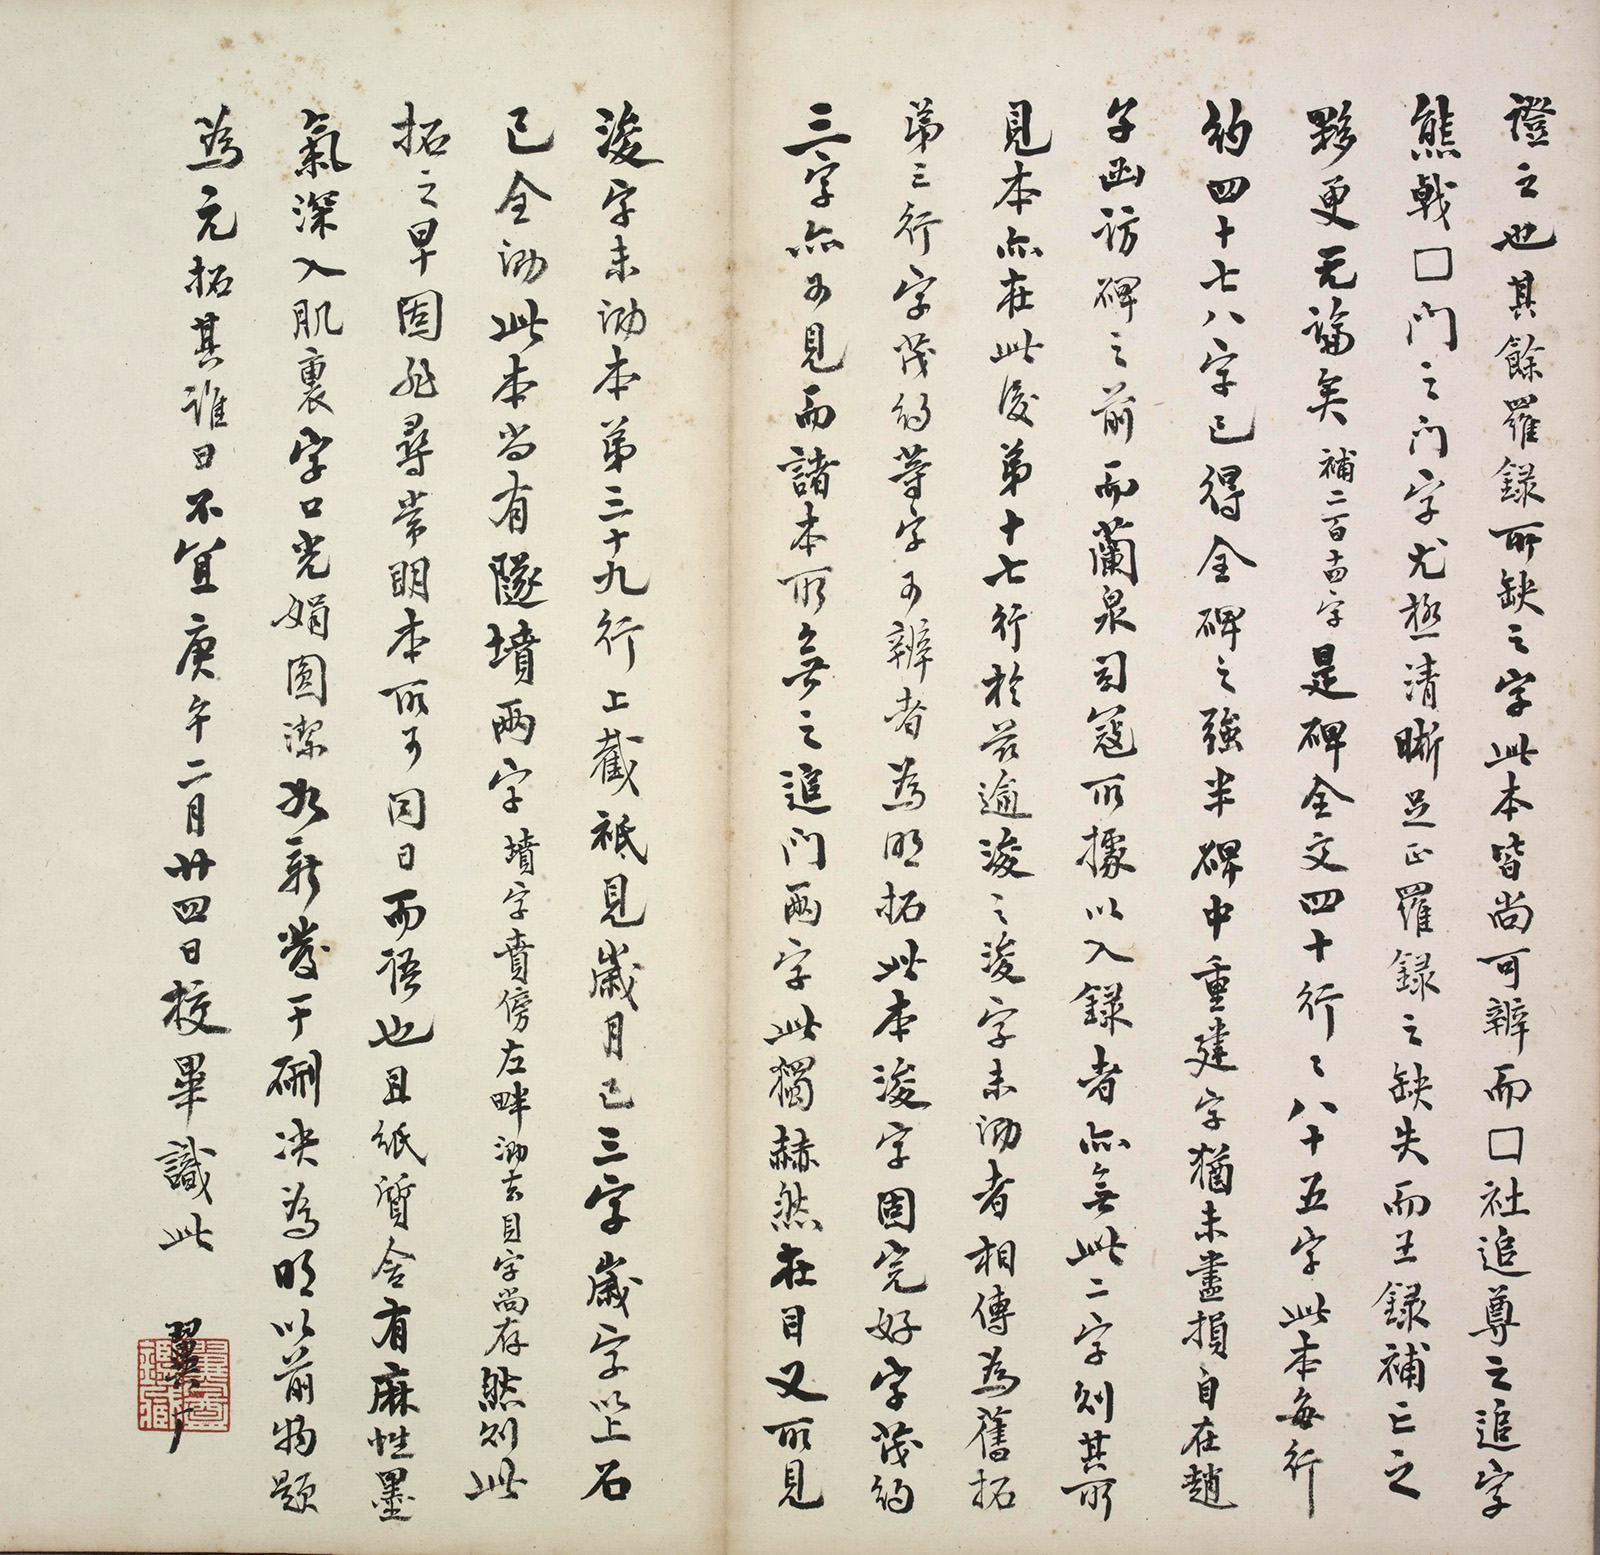 證之也其餘羅錄所缺之字此本皆尚可辨而囗社追尊之追字
熊戟囗門之门字尤極清晰足正羅錄之缺失而王錄補亡之
夥更无論矣補二百十四字是碑全文四十行〻八十五字此本每行
約四十七八字已得全碑之強半碑中重建字猶未盡損自在趙
子函訪碑之前而蘭泉司寇所據以入錄者亦無此二字則其所
見本亦在此後第十七行於茲逾浚之浚字未泐者相傳為舊拓
第三行字茂約等字可辨者為明拓此本浚字固完好字茂約
三字亦可見而諸本所無之追門兩字此獨赫然在目又所見
浚字未泐本第三十九行上截祗見歲月已三字歲字以上石
已全泐此本尚有隧墳兩字墳字賁傍左畔泐去貝字尚存然則此
拓之早固非尋常明本所可同日而語也且紙質含有麻性墨
氣深入肌裏字口光娟圓潔如新發于硎決為明以前物題
為元拓其誰曰不宜庚午二月廿四日校畢識此 翼厂